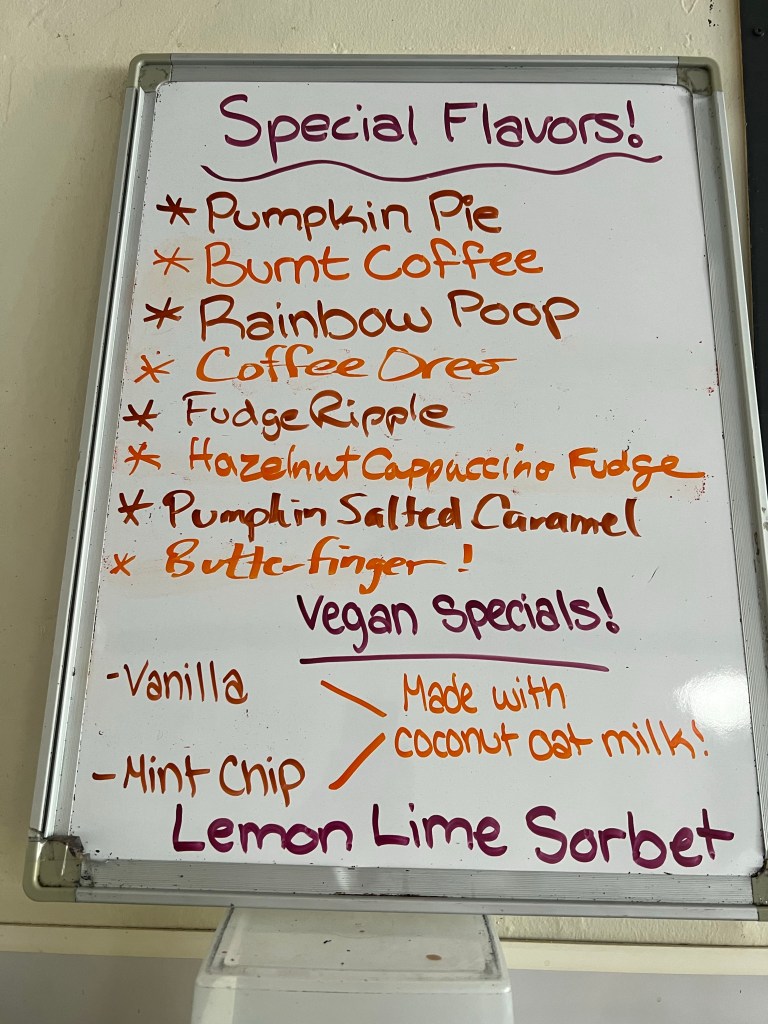 Special Flavors!
* Pumpkin Pie
* Burnt Coffee
* Rainbow Poop
* Coffee Oreo
* Fudge Ripple
* Hazelnut Cappuccino Fudge
* Pumpkin Salted Caramel
* Butterfinger!
Vegan Specials!
- Vanilla
Made with
coconut oat milk!
- Mint Chip
Lemon Lime Sorbet